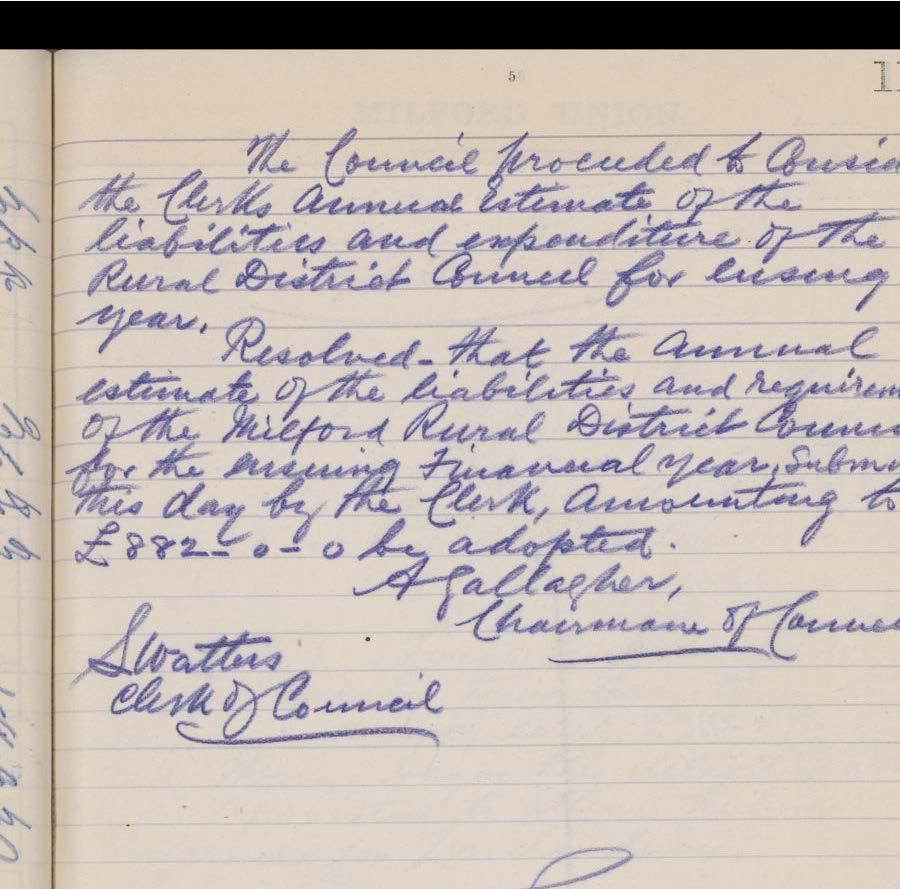 5
11
The Council proceeded to Consid
the Clerks Annual Estimate of the
liabilities and expenditure of the
Rural District Council for ensuing
year.
Resolved - that the Annual
estimate of the liabilities and requirem
of the Milford Rural District Counc
for the ensuing Financial year, Subm
this day by the Clerk, Amounting to
£882-0-0 be adopted.
A Gallagher,
Chairman of Counci
S Watters
Clerk of Council